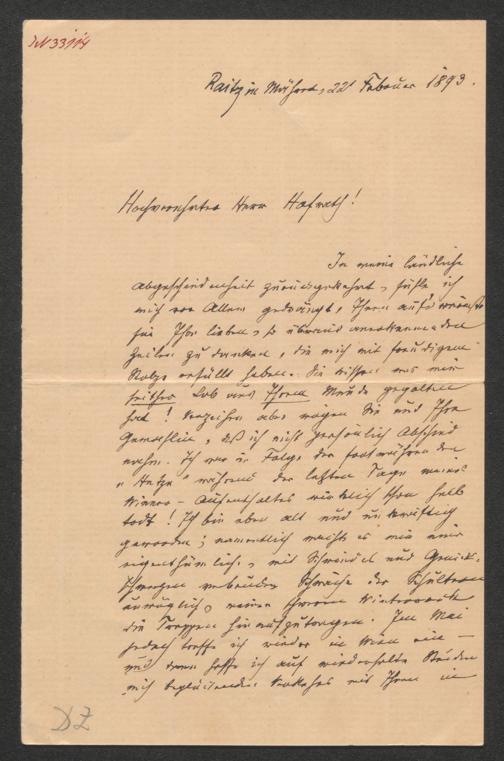 IN 33114
Raitz in Mähren, 22 Februar 1893.
Hochverehrter Herr Hofrath!
In meine ländliche
Abgeschiedenheit zurückgekehrt, fühle ich
mich vor Allem gedrängt, Ihnen auf's wärmste
für Ihre lieben, so überaus anerkennenden
Zeilen zu danken, die mich mit freudigem
Stolze erfüllt haben. Sie wissen was mir
seither Lob aus Ihrem Munde gegolten
hat! Verzeihen aber mögen Sie und Ihre
Gemahlin, daß ich nicht persönlich Abschied
nahm. Ich war in Folge der fortwährenden
"Hetze" während der letzten Tage meines
Wiener-Aufenthaltes wirklich schon halb
todt! Ich bin eben alt und
geworden; namentlich macht es mir eine
eigenthümliche, mit Schwindel und Genick-
schmerzen verbundene Schwäche der Schultern
unmöglich, meinen schweren Winterrock
die Treppen hinaufzutragen. Im Mai
jedoch treffe ich wieder in Wien ein —
und dann hoffe ich auf wiederholte Stunden
mich beglückenden Verkehrs mit Ihnen in
DZ